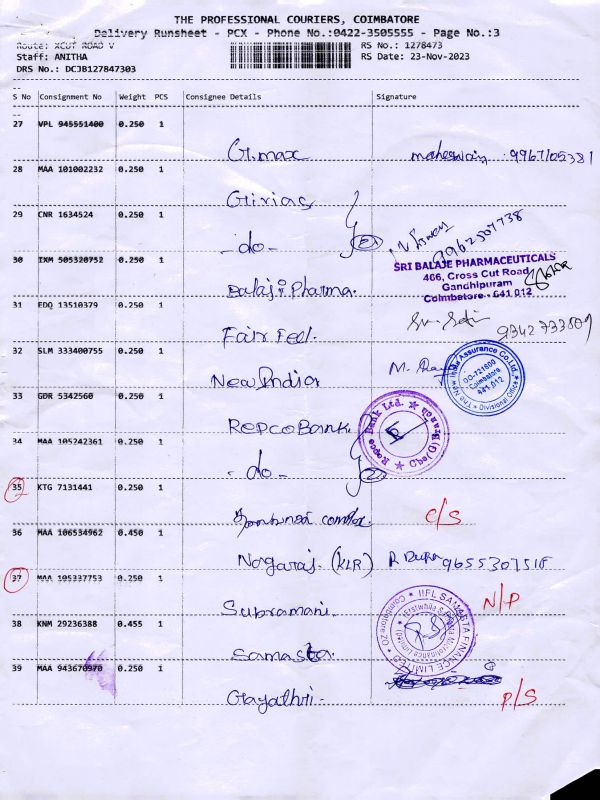 THE PROFESSIONAL COURIERS, COIMBATORE
Delivery Runsheet - PCX - Phone No.:0422-3505555 - Page No.:3
Route: XCUT ROAD V
RS No.: 1278473
Staff: ANITHA
RS Date: 23-Nov-2023
DRS No.: DCJB127847303
S No Consignment No Weight PCS Consignee Details Signature
27 VPL 945551400 0.250 1
Gt.max maheswari 9967105381
28 MAA 101002232 0.250 1
Girias
29 CNR 1634524 0.250 1
-do- (2) 9962507738
30 IXM 505320752 0.250 1
SRI BALAJE PHARMACEUTICALS
466, Cross Cut Road
Gandhipuram
Coimbatore - 641 012
Balaji Pharma.
31 EDQ 13510379 0.250 1
Fair Feel. 9342733809
32 SLM 333400755 0.250 1
New India M.
The New India Assurance Co.Ltd. Divisional Office
DO-721600
Coimbatore
641 012
33 GDR 5342560 0.250 1
REPCO Bank.
Repco Bank Ltd.
34 MAA 105242361 0.250 1
-do- (2)
35 KTG 7131441 0.250 1
C/S
36 MAA 106534962 0.450 1
Nagaraj. (KLR) R 9655307518
37 MAA 105337753 0.250 1
Supramani. N/P
38 KNM 29236388 0.455 1
Samasta.
IIFL SAMASTA FINANCE LIMITED
39 MAA 943670970 0.250 1
Gayathri. P/S